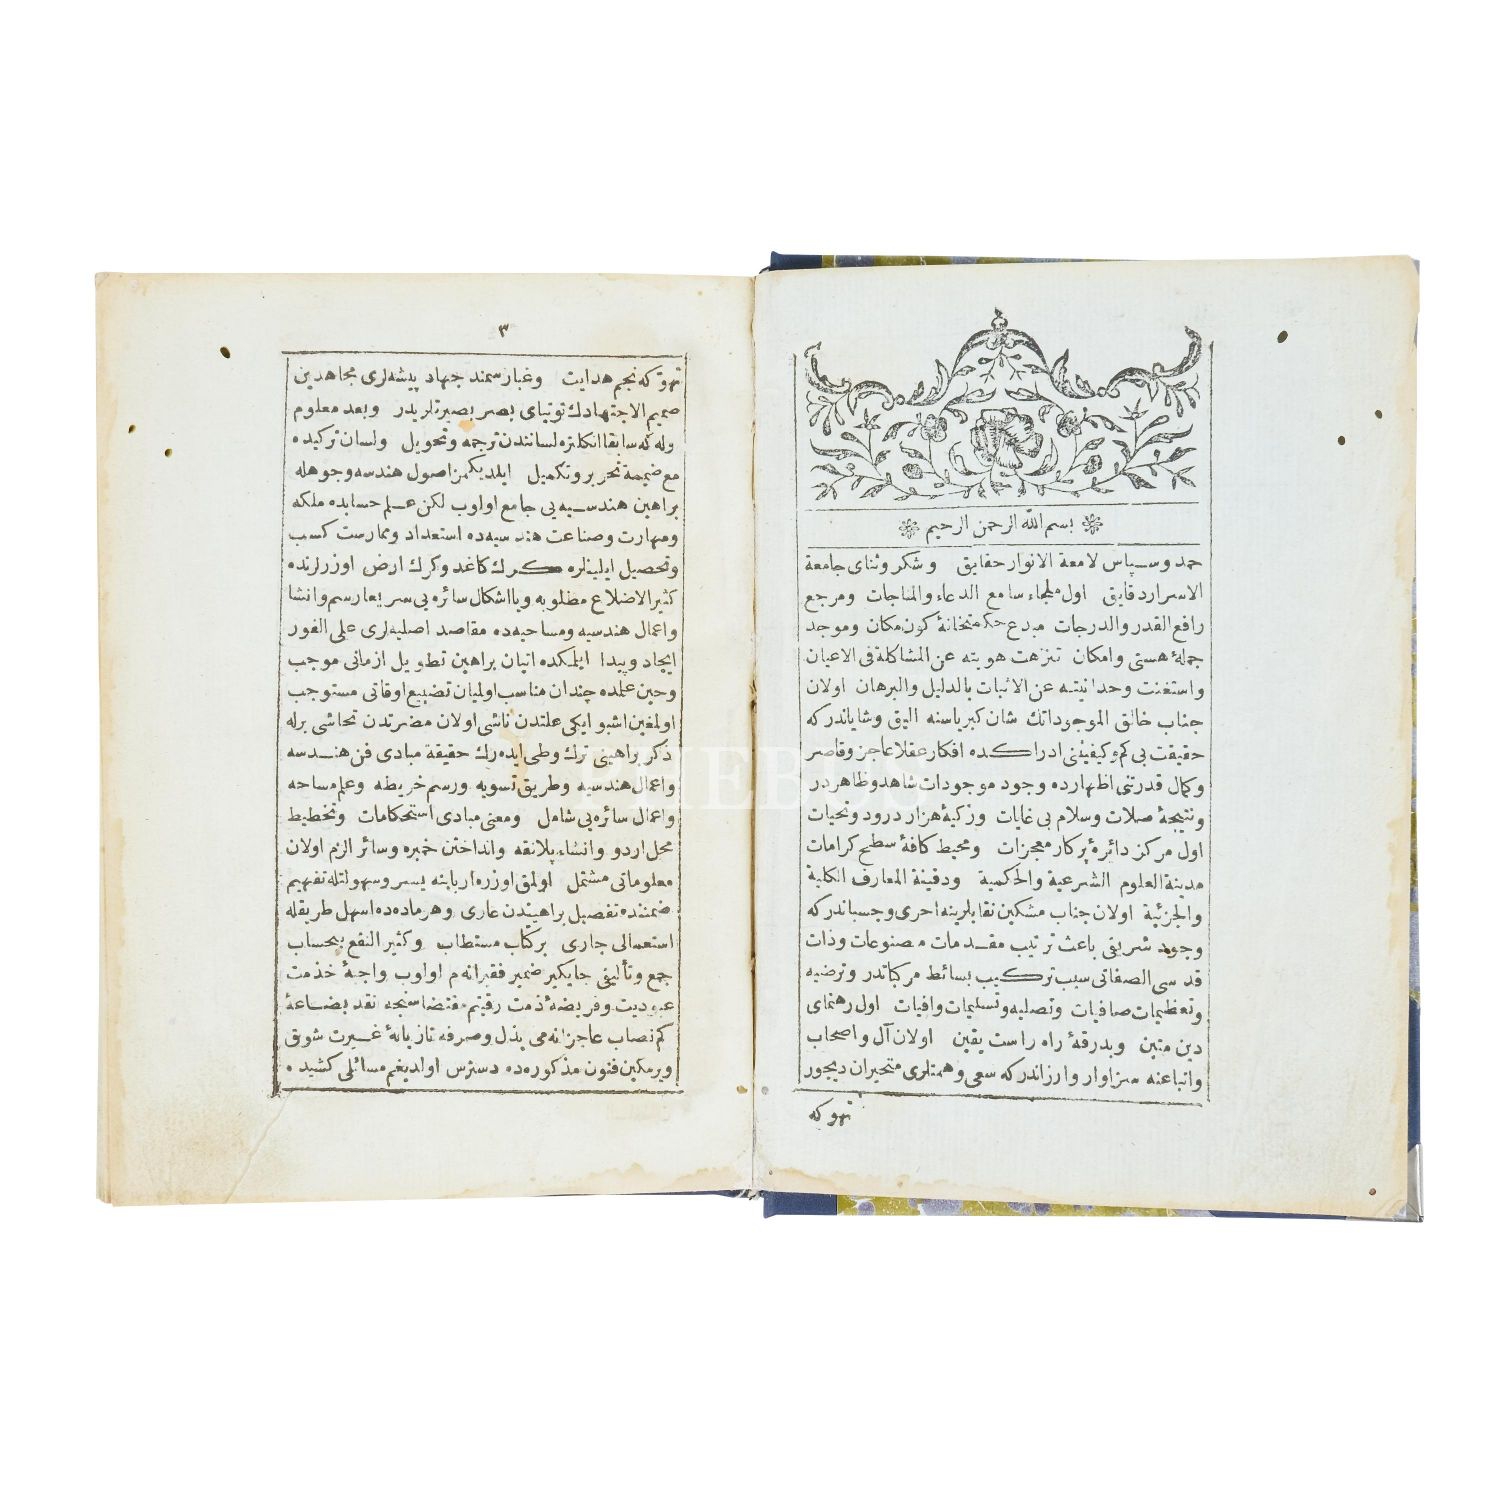 بسم الله الرحمن الرحيم
حمد وسپاس لامعة الانوار حقايق وشكر وثناى جامعة
الاسرار دقايق اول ملجاء سامع الدعاء والمناجات ومرجع
رافع القدر والدرجات مبدع حكمتخانهٔ كون مكان وموجد
جملهٔ هستى وامكان تنزهت هويته عن المشاكلة فى الاعيان
واستغنت وحدانيته عن الاثبات بالدليل والبرهان اولان
جناب خالق الموجوداتك شان كبرياسنه اليق وشاياندركه
حقيقت بى كم وكيفيتنى ادراكده افكار عقلا عاجز وقاصر
وكمال قدرتنى اظهارده وجود موجودات شاهد وظاهردر
ونتيجهٔ صلات وسلام بى غايات وزكيهٔ هزار درود وتحيات
اول مركز دائرهٔ پركار معجزات ومحيط كافهٔ سطح كرامات
مدينة العلوم الشرعية والحكمية ودفينة المعارف الكلية
والجزئية اولان جناب مشكين نقابلرينه احرى وچسباندركه
وجود شريفى باعث ترتيب مقدمات مصنوعات وذات
قدسى الصفاتى سبب تركيب بسائط مركباتدر وترضيه
وتعظيمات صافيات وتصليه وتسليمات وافيات اول رهنماى
دين متين وبدرقهٔ راه راست يقين اولان آل واصحاب
واتباعنه سزاوار وارزاندركه سعى وهمتلرى متحيران ديجور
تهوكه
٣
تهوكه نجم هدايت وغبار سمند جهاد پيشه‌لرى مجاهدين
صميم الاجتهادك توتياى بصر بصيرتلريدر وبعد معلوم
وله كه سابقا انكلتره لسانندن ترجمه وتحويل ولسان تركيده
مع ضميمة تحرير وتكميل ايلديكمز اصول هندسه وجوهله
براهين هندسيه‌يى جامع اولوب لكن علم حسابده ملكه
ومهارت وصناعت هندسيه‌ده استعداد وممارست كسب
وتحصيل ايلينلره كرك كاغد وكرك ارض اوزرلرنده
كثير الاضلاع مطلوبه ويا اشكال سائره‌يى سريعا رسم وانشا
واعمال هندسيه ومساحيه‌ده مقاصد اصليه‌لرى على الفور
ايجاد وپيدا ايلمكده اتيان براهين تطويل ازمانى موجب
وحين عملده چندان مناسب اولميان تضييع اوقاتى مستوجب
اولمغين اشبو ايكى علتدن ناشى اولان مضرتدن تحاشى برله
ذكر براهينى ترك وطى ايده‌رك حقيقة مبادى فن هندسه
واعمال هندسيه وطريق تسويه ورسم خريطه وعلم مساحه
واعمال سائره‌يى شامل ومعنى مبادى استحكامات وتخطيط
محل اردو وانشاء پلانقه وانداختن خمپره وسائر الزم اولان
معلوماتى مشتمل اولمق اوزره اربابنه يسر وسهولتله تفهيم
ضمننده تفصيل براهيندن عارى وهر ماده‌ده اسهل طريقله
استعمالى جارى بر كتاب مستطاب وكثير النفع بيحساب
جمع وتأليفى جايكير ضمير فقيرانه‌م اولوب واجبهٔ خدمت
عبوديت وفريضهٔ ذمت رقيتم مقتضاسنجه نقد بضاعهٔ
كم نصاب عاجزانه‌مى بذل وصرفه تازيانهٔ غيرت شوق
ويرمكين فنون مذكوره‌ده دسترس اولديغم مسائلى كشيده